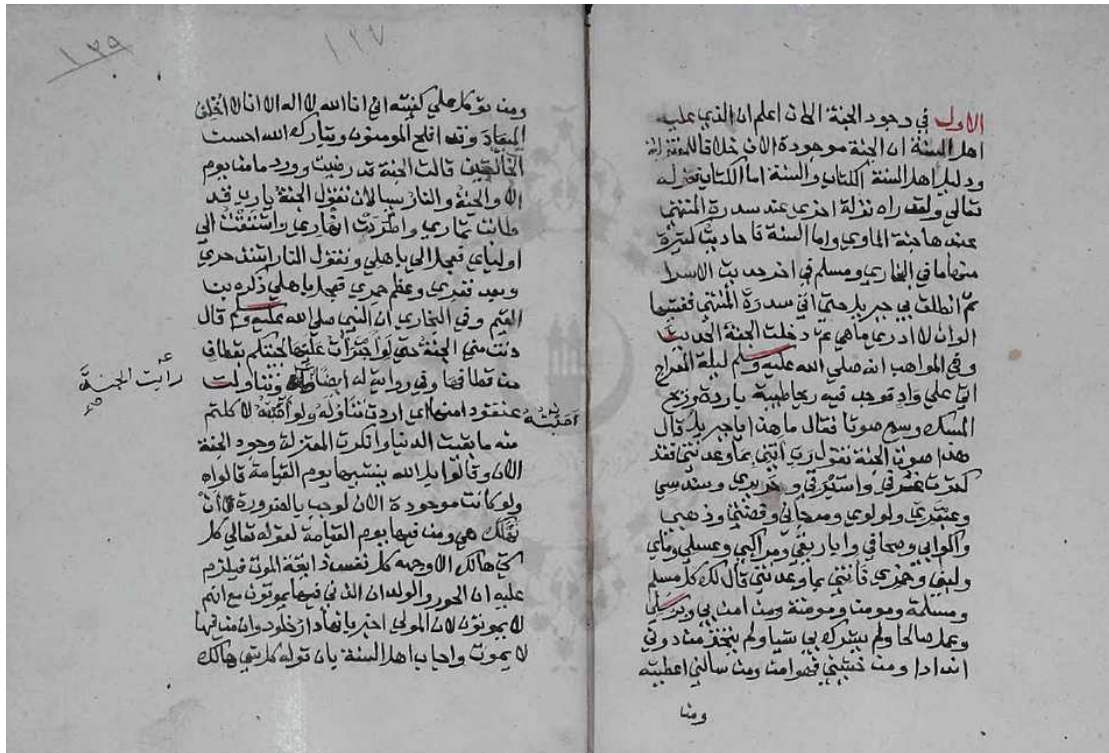 الاول في وجود الجنة الان اعلم ان الذي عليه
اهل السنة ان الجنة موجودة الان خلافا للمعتزلة
ودليل اهل السنة الكتاب والسنة اما الكتاب فقوله
تعالي ولقد راه نزلة اخري عند سدرة المنتهي
عندها جنة الماوي واما السنة فاحاديث كثيرة
منها ما في البخاري ومسلم في اخر حديث الاسرا
ثم انطلق بي جبريل حتي اتي سدرة المنتهي فغشيها
الوان لا ادري ما هي ثم دخلت الجنة الحديث
وفي المواهب انه صلي الله عليه وسلم ليلة المعراج
اتي علي واد فوجد فيه ريحا طيبة باردة وريح
المسك وسمع صوتا فقال ما هذا يا جبريل قال
هذا صوت الجنة تقول رب اتني بما وعدتني فقد
كثرت غرفي واستبرقي وحريري وسندسي
وعبقري ولولوي ومرجاني وفضتي وذهبي
واكوابي وصحافي واباريقي ومراكبي وعسلي ومايي
ولبني وخمري فاتني بما وعدتني قال لك كل مسلم
ومسلمة ومومن ومومنة ومن امن بي وبرسلي
وعمل صالحا ولم يشرك بي شيا ولم يتخذ من دوني
اندادا ومن خشيني فهو امن ومن سالني اعطيته
ومن
١٣٩
١٣٧
ومن توكل علي كفيته اني انا الله لا اله الا انا لا اخلف
الميعاد وقد افلح المومنون وتبارك الله احسن
الخالقين قالت الجنة قد رضيت وورد ما من يوم
الا والجنة والنار يسالان تقول الجنة يا رب قد
طابت ثماري واطردت انهاري واشتقت الي
اوليائي فعجل الي باهلي وتقول النار اشتد حري
وبعد قعري وعظم جمري فعجل باهلي ذكره بن
القيم وفي البخاري ان النبي صلي الله عليه وسلم قال
دنت مني الجنة حتي لو اجترات عليها لجئتكم بقطاف
من قطافها وفي رواية له ايضا وتناولت
رايت الجنة
عنقودا منها اي اردت تناوله ولو اصبته لاكلتم
اصبته
منه ما بقيت الدنيا وانكرت المعتزلة وجود الجنة
الان وقالوا بل الله ينشيها يوم القيامة قالوا
ولو كانت موجودة الان لوجب بالضرورة ان
تهلك هي ومن فيها يوم القيامة لقوله تعالي كل
شي هالك الا وجهه كل نفس ذايقة الموت فيلزم
عليه ان الحور والولدان الذي فيها يموتون مع انهم
لا يموتون لان المولي اخبر بانها دار خلود وان من فيها
لا يموت واجاب اهل السنة بان قوله كل شي هالك